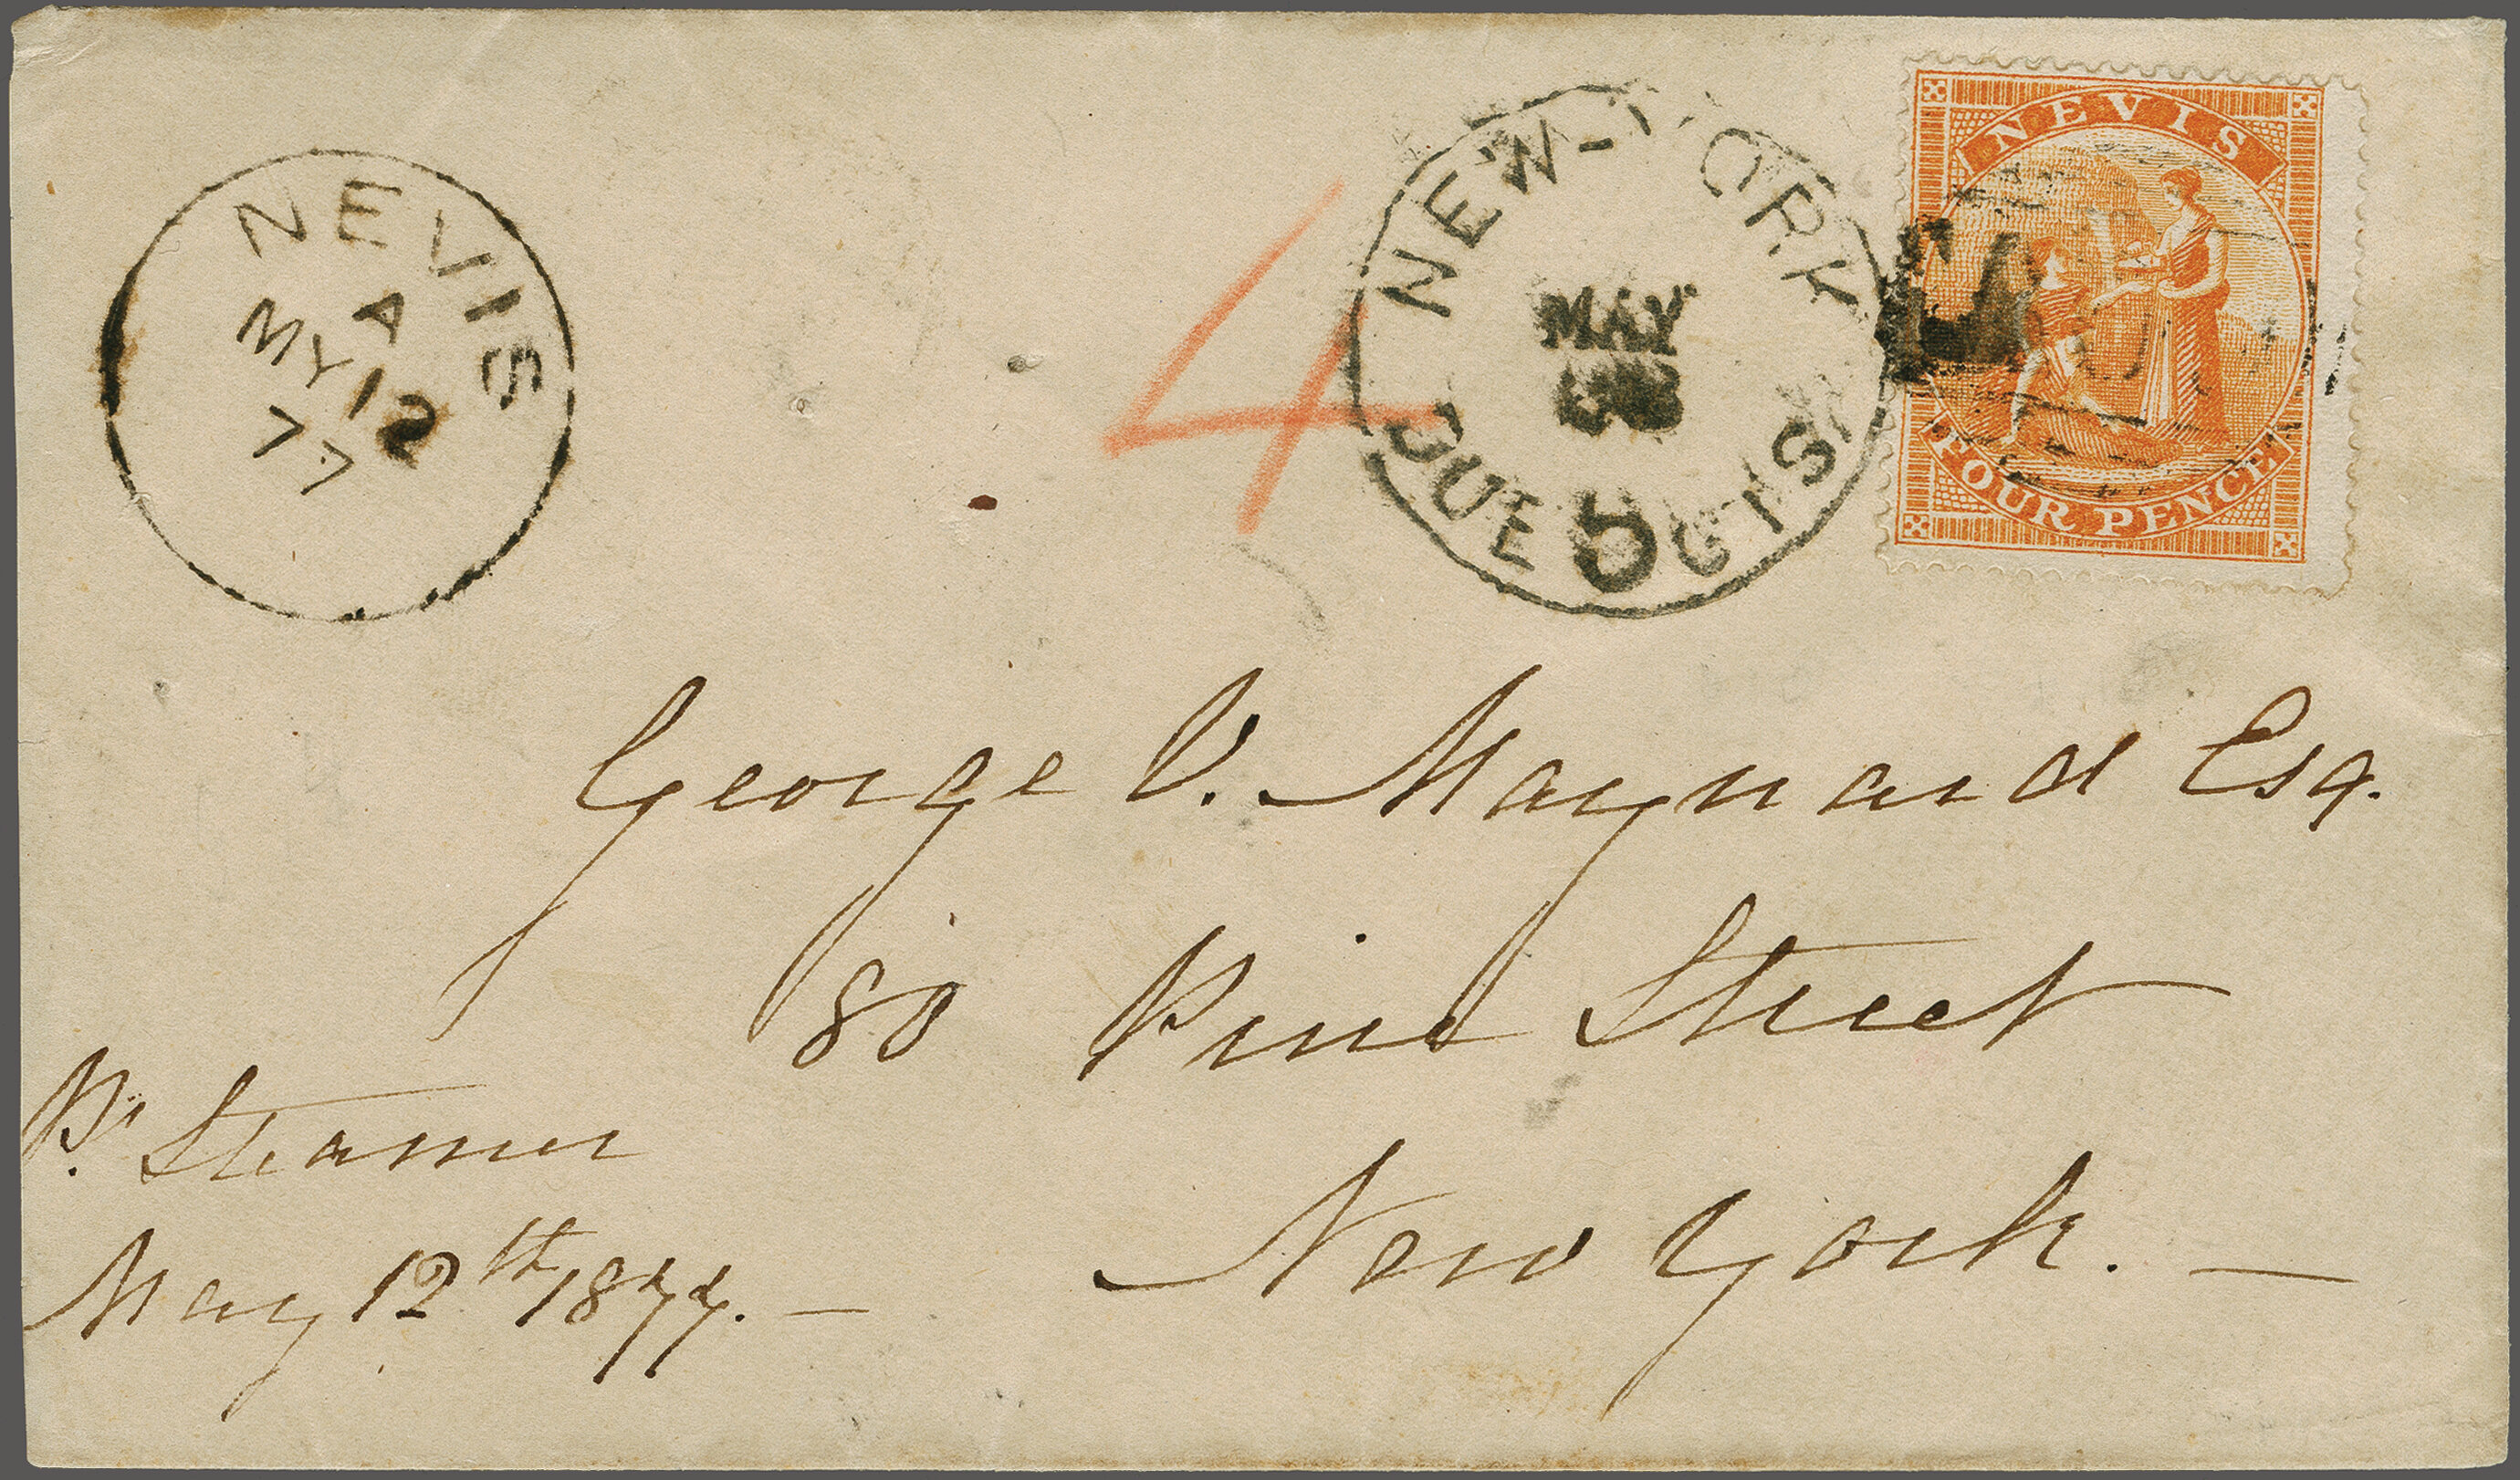 NEVIS
A
MY 12
77
4
NEW-YORK
MAY
DUE CTS
NEVIS
FOUR PENCE
George V. Maynard Esq.
80 Pine Street
New York. —
Pr. Steamer
May 12th 1877. —